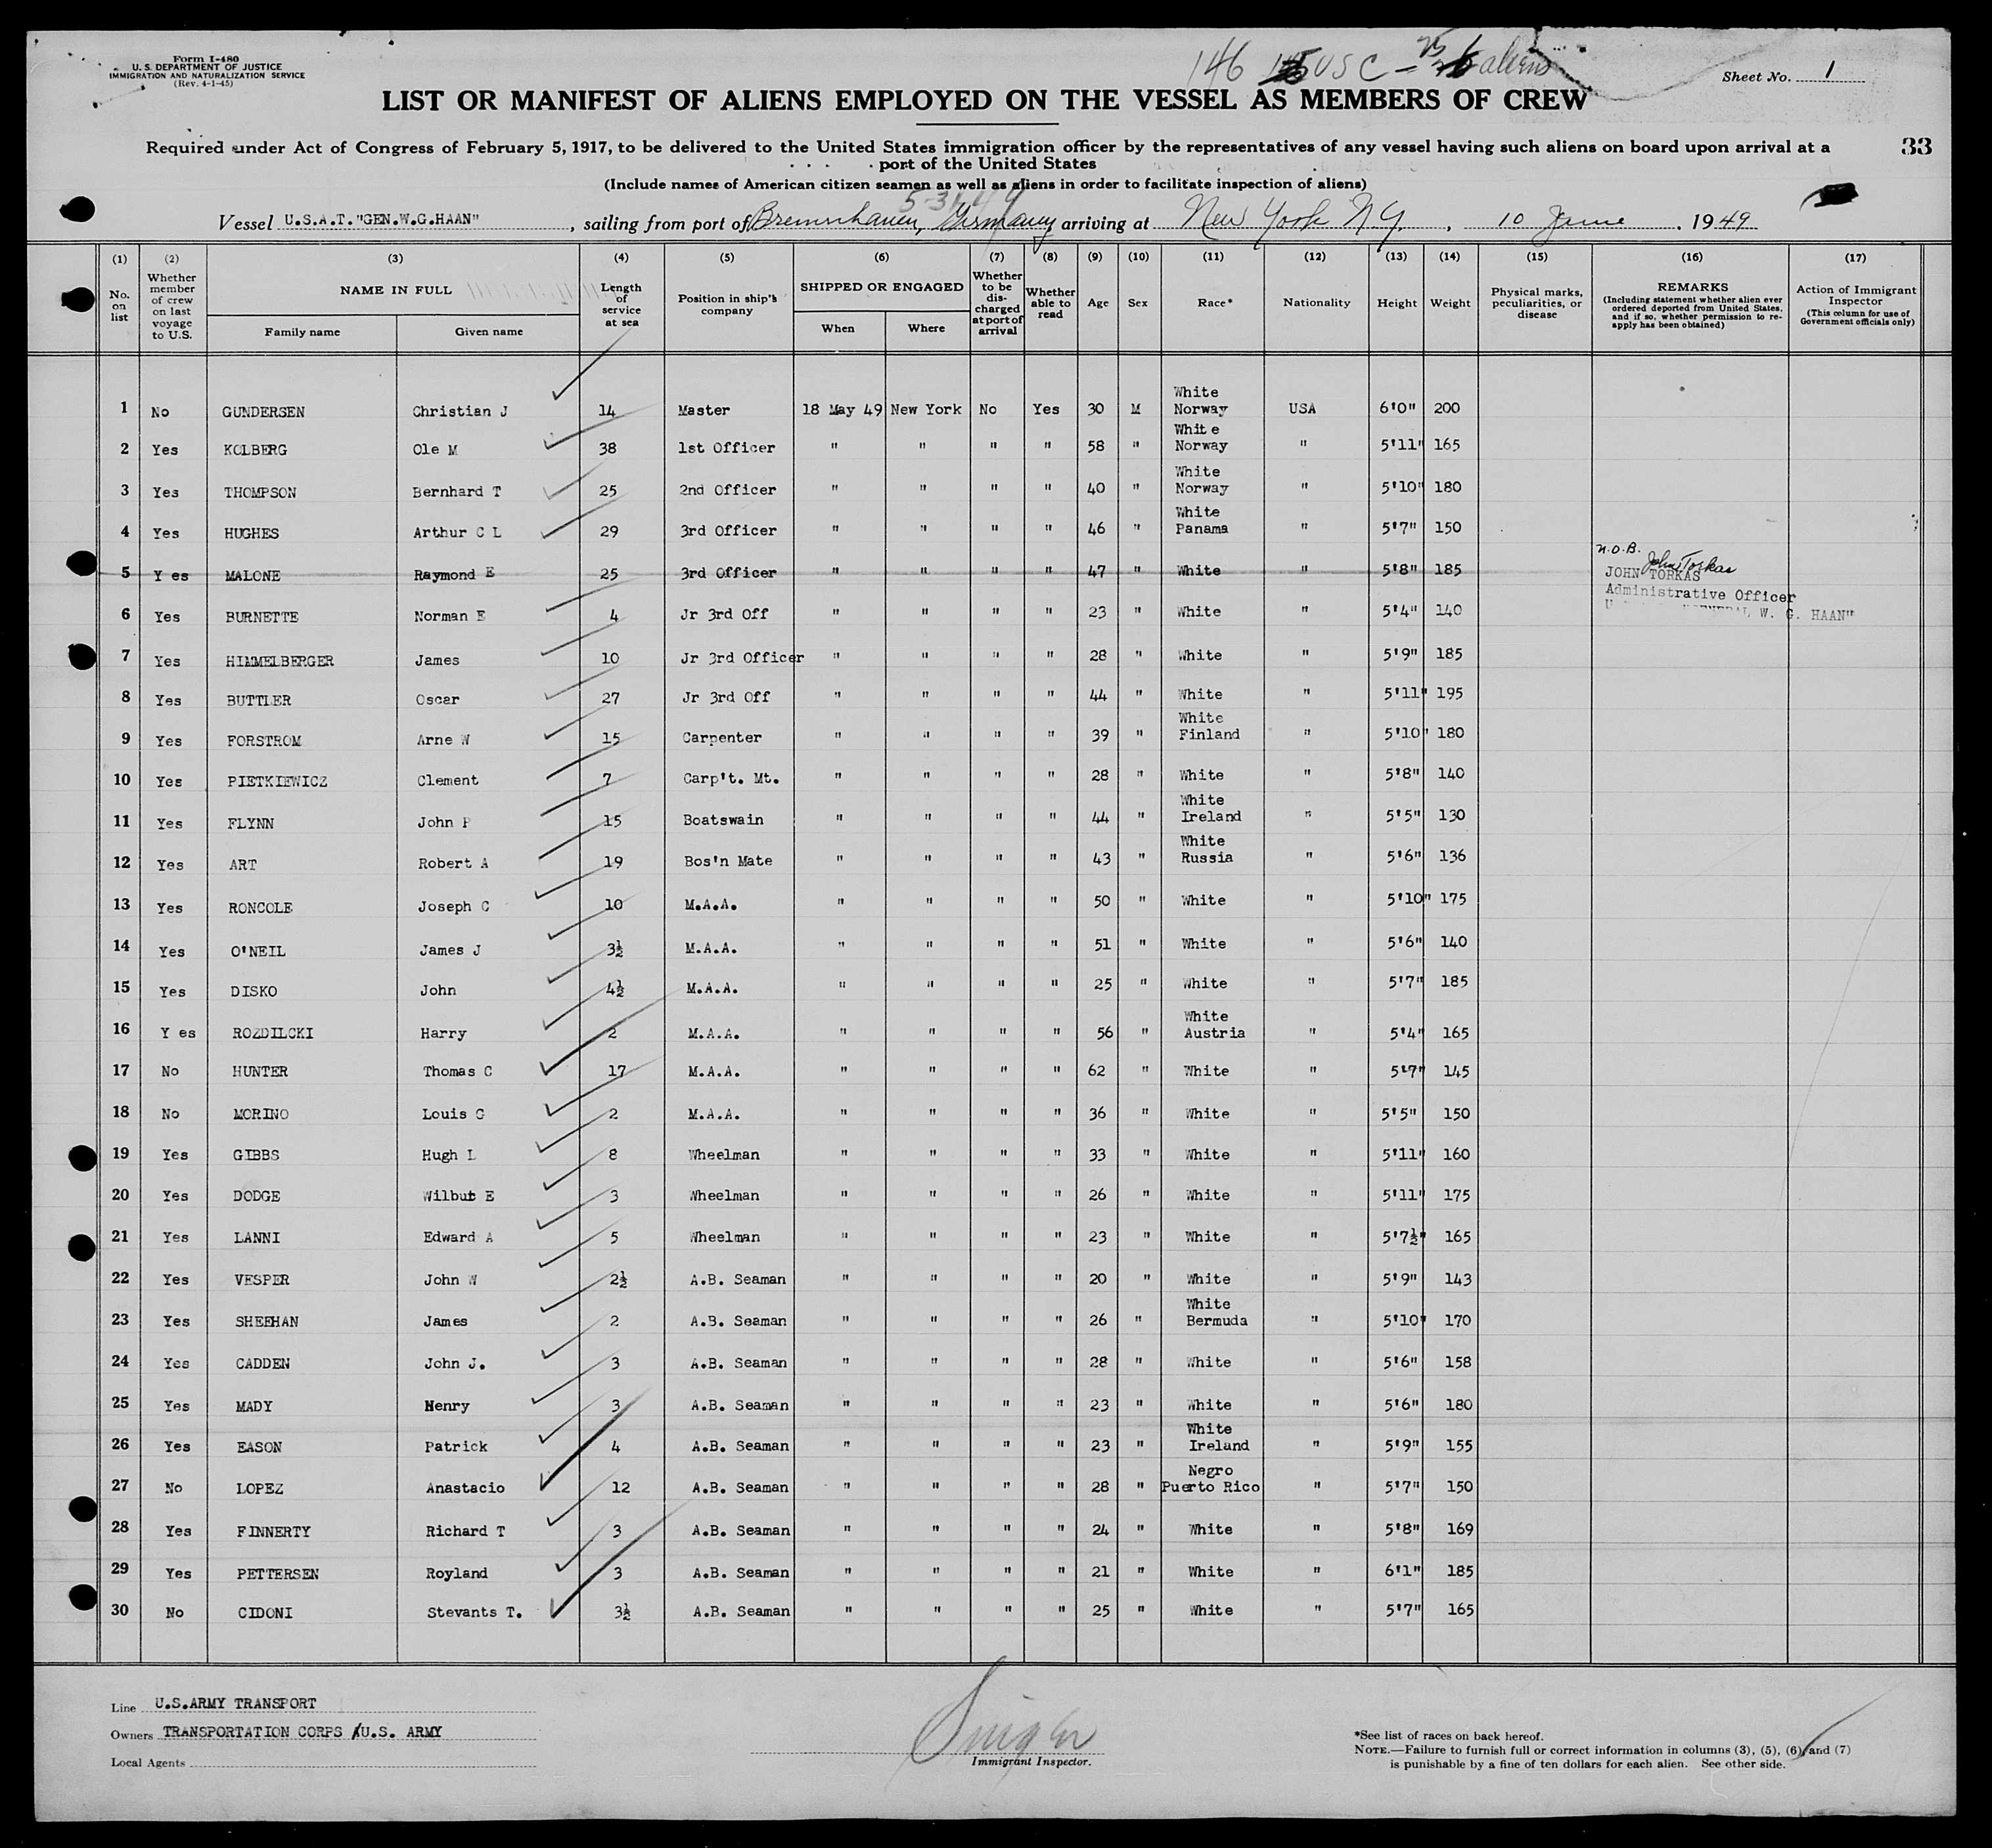 Form I-480
U. S. DEPARTMENT OF JUSTICE
IMMIGRATION AND NATURALIZATION SERVICE
(Rev. 4-1-45)
146 USC - aliens
Sheet No. 1
LIST OR MANIFEST OF ALIENS EMPLOYED ON THE VESSEL AS MEMBERS OF CREW
Required under Act of Congress of February 5, 1917, to be delivered to the United States immigration officer by the representatives of any vessel having such aliens on board upon arrival at a
port of the United States
33
(Include names of American citizen seamen as well as aliens in order to facilitate inspection of aliens)
5-31-49
Vessel U.S.A.T."GEN.W.G.HAAN", sailing from port of Bremerhaven, Germany arriving at New York N.Y., 10 June, 1949
(1) (2) (3) (4) (5) (6) (7) (8) (9) (10) (11) (12) (13) (14) (15) (16) (17)
No. on list | Whether member of crew on last voyage to U.S. | NAME IN FULL | Family name | Given name | Length of service at sea | Position in ship's company | SHIPPED OR ENGAGED | When | Where | Whether to be discharged at port of arrival | Whether able to read | Age | Sex | Race* | Nationality | Height | Weight | Physical marks, peculiarities, or disease | REMARKS (Including statement whether alien ever ordered deported from United States, and if so, whether permission to re-apply has been obtained) | Action of Immigrant Inspector (This column for use of Government officials only)
1 No GUNDERSEN Christian J 14 Master 18 May 49 New York No Yes 30 M White Norway USA 6'0" 200
2 Yes KOLBERG Ole M 38 1st Officer " " " " 58 " White Norway " 5'11" 165
3 Yes THOMPSON Bernhard T 25 2nd Officer " " " " 40 " White Norway " 5'10" 180
4 Yes HUGHES Arthur C L 29 3rd Officer " " " " 46 " White Panama " 5'7" 150
5 Y es MALONE Raymond E 25 3rd Officer " " " " 47 " White " 5'8" 185 N.O.B. John Torkas
JOHN TORKAS
Administrative Officer
W. G. HAAN"
6 Yes BURNETTE Norman E 4 Jr 3rd Off " " " " 23 " White " 5'4" 140
7 Yes HIMMELBERGER James 10 Jr 3rd Officer " " " " 28 " White " 5'9" 185
8 Yes BUTTLER Oscar 27 Jr 3rd Off " " " " 44 " White " 5'11" 195
9 Yes FORSTROM Arne W 15 Carpenter " " " " 39 " White Finland " 5'10" 180
10 Yes PIETKIEWICZ Clement 7 Carp't. Mt. " " " " 28 " White " 5'8" 140
11 Yes FLYNN John P 15 Boatswain " " " " 44 " White Ireland " 5'5" 130
12 Yes ART Robert A 19 Bos'n Mate " " " " 43 " White Russia " 5'6" 136
13 Yes RONCOLE Joseph C 10 M.A.A. " " " " 50 " White " 5'10" 175
14 Yes O'NEIL James J 3½ M.A.A. " " " " 51 " White " 5'6" 140
15 Yes DISKO John 4½ M.A.A. " " " " 25 " White " 5'7" 185
16 Y es ROZDILCKI Harry 2 M.A.A. " " " " 56 " White Austria " 5'4" 165
17 No HUNTER Thomas C 17 M.A.A. " " " " 62 " White " 5'7" 145
18 No MORINO Louis G 2 M.A.A. " " " " 36 " White " 5'5" 150
19 Yes GIBBS Hugh L 8 Wheelman " " " " 33 " White " 5'11" 160
20 Yes DODGE Wilbut E 3 Wheelman " " " " 26 " White " 5'11" 175
21 Yes LANNI Edward A 5 Wheelman " " " " 23 " White " 5'7½" 165
22 Yes VESPER John W 2½ A.B. Seaman " " " " 20 " White " 5'9" 143
23 Yes SHEEHAN James 2 A.B. Seaman " " " " 26 " White Bermuda " 5'10" 170
24 Yes CADDEN John J. 3 A.B. Seaman " " " " 28 " White " 5'6" 158
25 Yes MADY Henry 3 A.B. Seaman " " " " 23 " White " 5'6" 180
26 Yes EASON Patrick 4 A.B. Seaman " " " " 23 " White Ireland " 5'9" 155
27 No LOPEZ Anastacio 12 A.B. Seaman " " " " 28 " Negro Puerto Rico " 5'7" 150
28 Yes FINNERTY Richard T 3 A.B. Seaman " " " " 24 " White " 5'8" 169
29 Yes PETTERSEN Royland 3 A.B. Seaman " " " " 21 " White " 6'1" 185
30 No CIDONI Stevants T. 3½ A.B. Seaman " " " " 25 " White " 5'7" 165
Line U.S.ARMY TRANSPORT
Owners TRANSPORTATION CORPS /U.S. ARMY
Local Agents
Immigrant Inspector.
*See list of races on back hereof.
NOTE.—Failure to furnish full or correct information in columns (3), (5), (6) and (7)
is punishable by a fine of ten dollars for each alien. See other side.